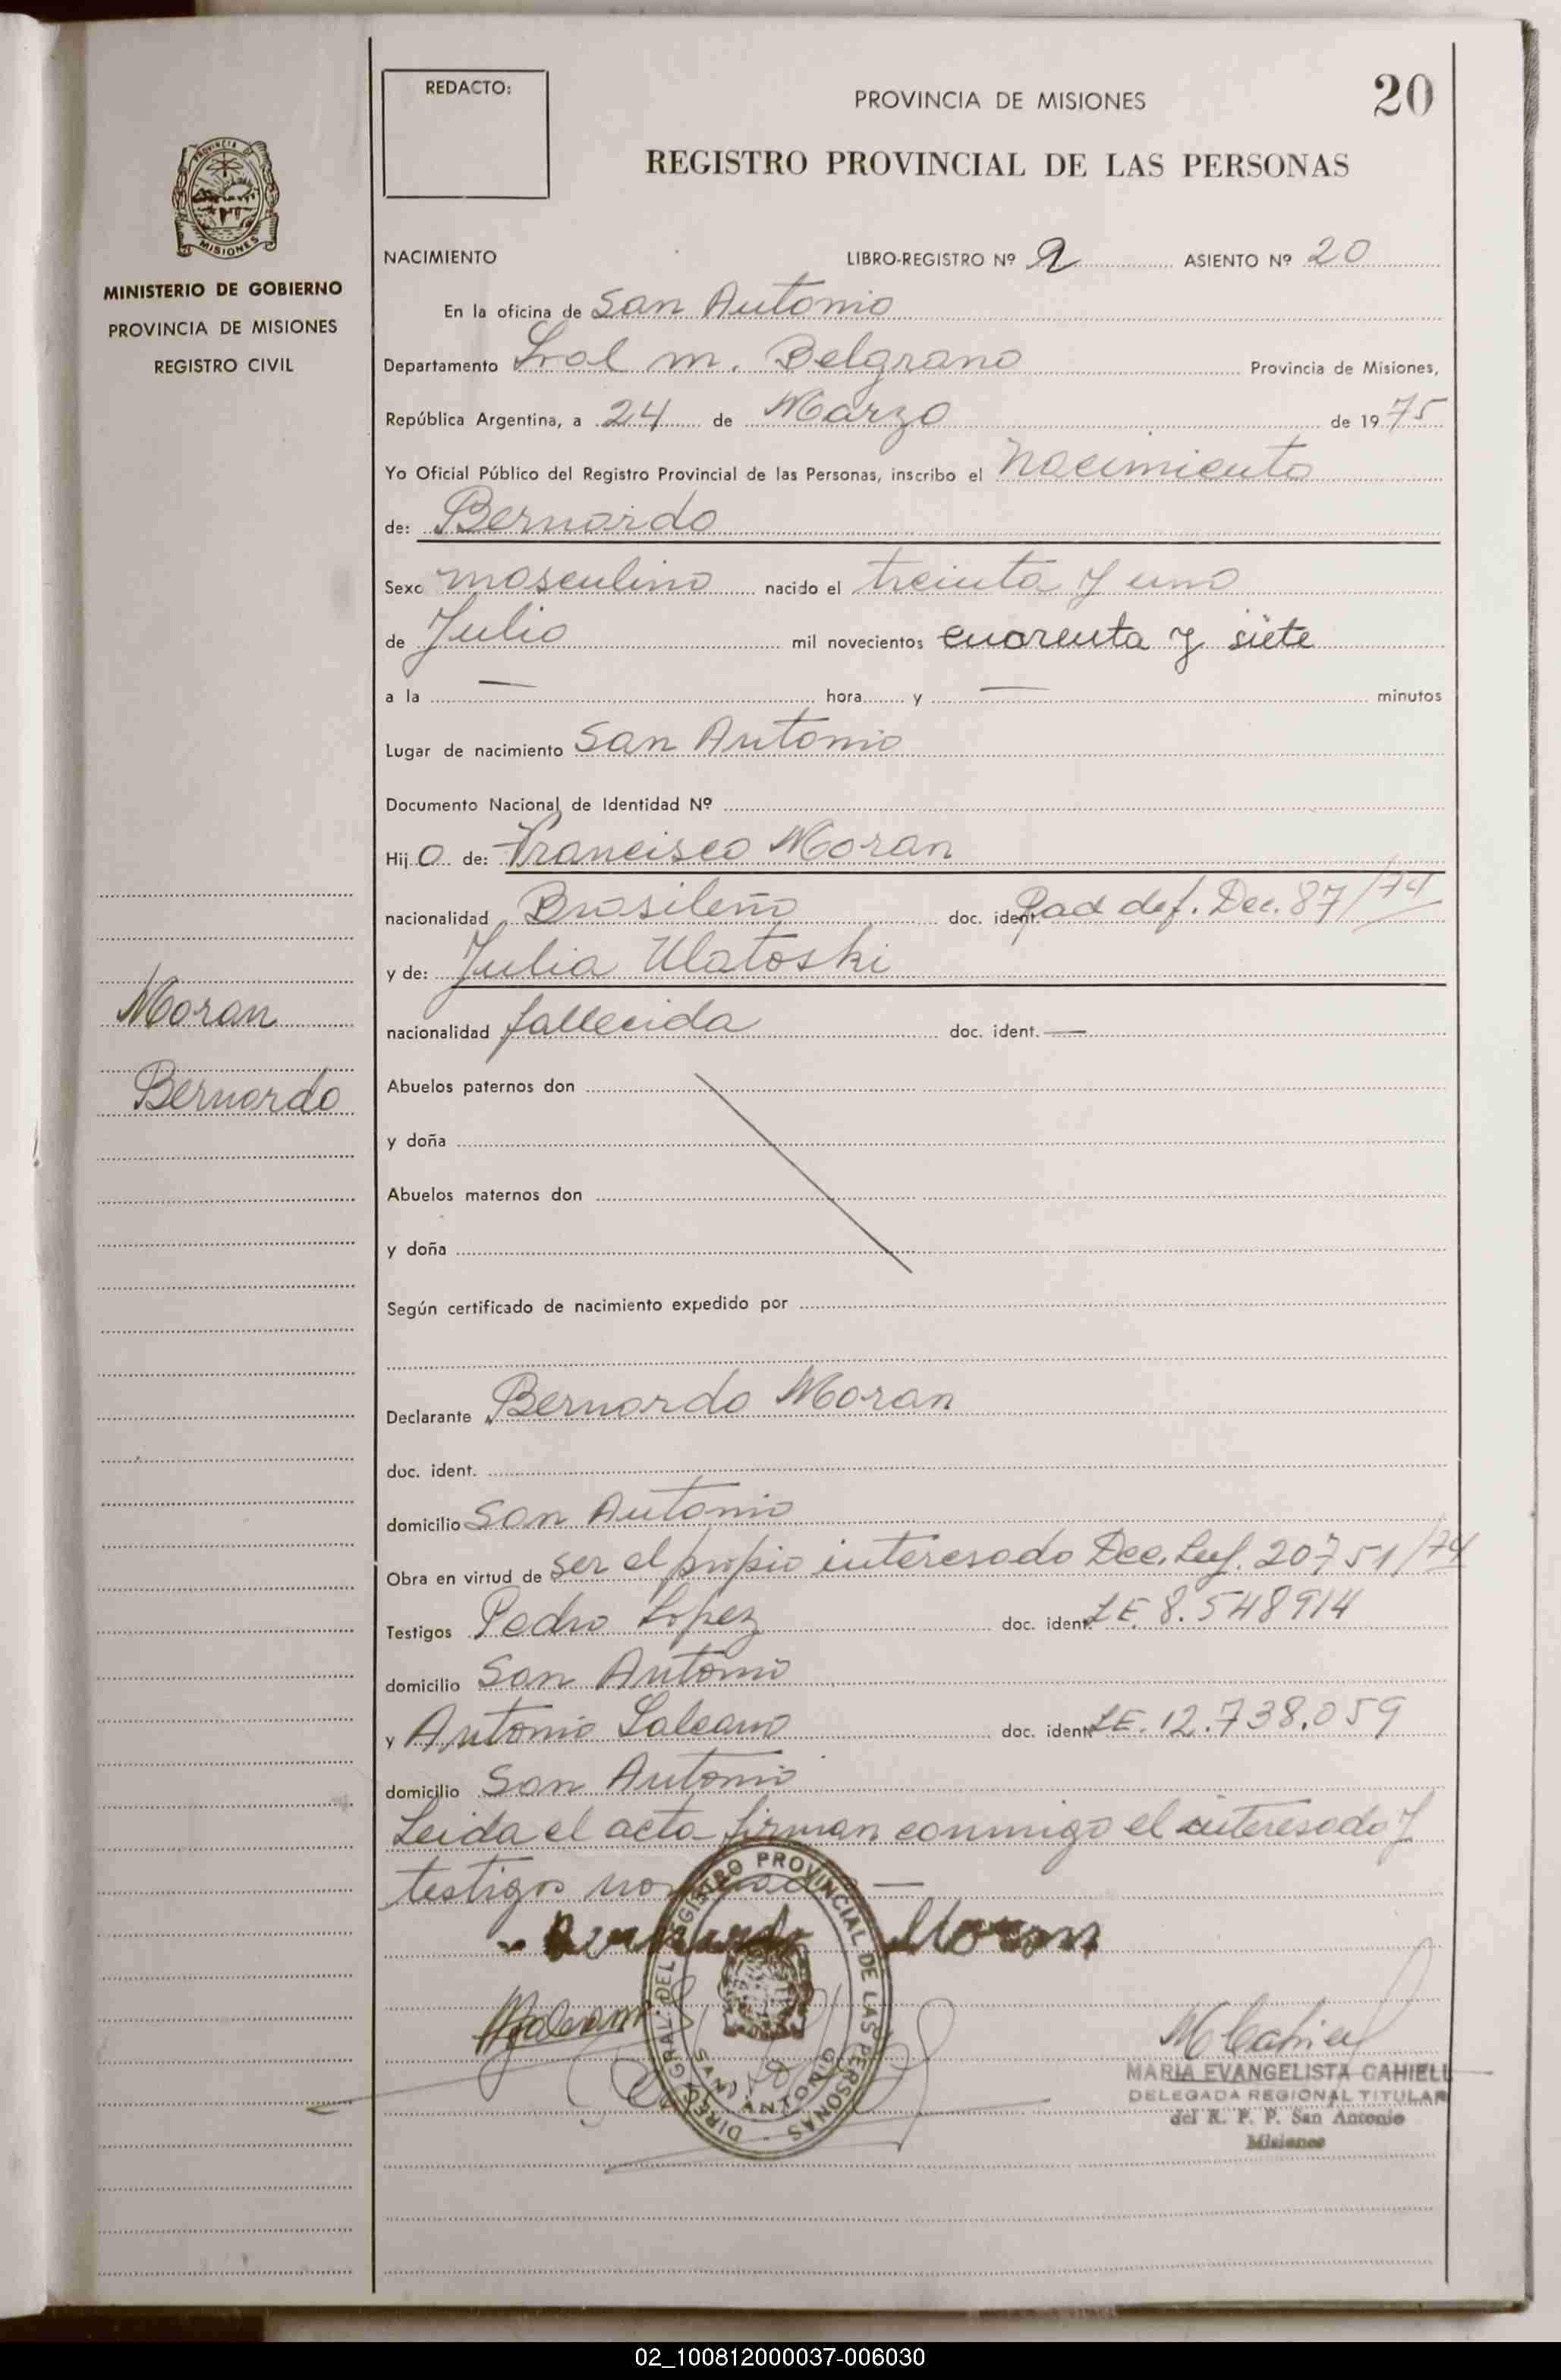 REDACTO:
PROVINCIA DE MISIONES
20
REGISTRO PROVINCIAL DE LAS PERSONAS
PROVINCIA DE
MISIONES
MINISTERIO DE GOBIERNO
PROVINCIA DE MISIONES
REGISTRO CIVIL
NACIMIENTO LIBRO-REGISTRO Nº 2 ASIENTO Nº 20
En la oficina de San Antonio
Departamento Gral M. Belgrano Provincia de Misiones,
República Argentina, a 24 de Marzo de 1975
Yo Oficial Público del Registro Provincial de las Personas, inscribo el Nacimiento
de: Bernardo
Sexo masculino nacido el treinta y uno
de Julio mil novecientos cuarenta y siete
a la — hora y — minutos
Lugar de nacimiento San Antonio
Documento Nacional de Identidad Nº
Hijo de: Francisco Moran
nacionalidad Brasileño doc. ident. Rad def. Dec. 87/74
y de: Julia Ulatoski
nacionalidad fallecida doc. ident. —
Moran
Bernardo
Abuelos paternos don
y doña
Abuelos maternos don
y doña
Según certificado de nacimiento expedido por
Declarante Bernardo Moran
doc. ident.
domicilio San Antonio
Obra en virtud de ser el propio interesado Dec. Ley. 20751/74
Testigos Pedro Lopez doc. ident. LE 8.548914
domicilio San Antonio
y Antonio Galeano doc. ident. LE. 12.738.059
domicilio San Antonio
Leida el acta firman conmigo el interesado y
testigos —
Bernardo Moran
DIREC. GRAL. DEL REGISTRO PROVINCIAL DE LAS PERSONAS
SAN ANTONIO
MARIA EVANGELISTA CAHIELL
DELEGADA REGIONAL TITULAR
del R. P. P. San Antonio
Misiones
02_100812000037-006030